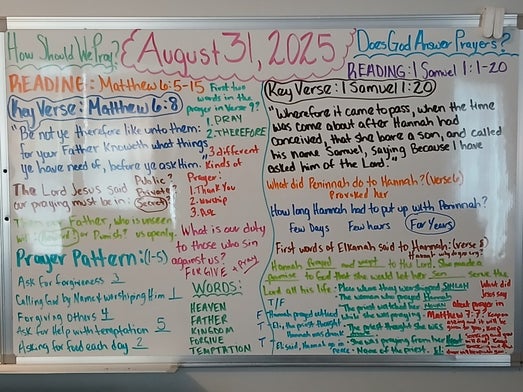 How Should We Pray?
August 31, 2025
Does God Answer Prayers?
READING: Matthew 6:5-15
Key Verse: Matthew 6:8
"Be not ye therefore like unto them:
for your Father Knoweth what things
ye have need of, before ye ask Him."
The Lord Jesus said
our praying must be in:
Public?
Private?
Secret?
Father, who is unseen
will
or Punish? us openly.
Prayer Pattern: (1-5)
Ask For Forgiveness 3
Calling God by Name & worshiping Him 1
Forgiving others 4
Ask for Help with temptation 5
Asking for food each day 2
First two
words in the
prayer in Verse 9?
1. PRAY
2. THEREFORE
3 different
Kinds of
Prayer:
1. Thank You
2. Worship
3. Ask
What is our duty
to those who sin
against us?
FORGIVE + pray
WORDS:
HEAVEN
FATHER
KINGDOM
FORGIVE
TEMPTATION
READING: 1 Samuel 1:1-20
Key Verse: 1 Samuel 1:20
"Wherefore it came to pass, when the time
was come about after Hannah had
conceived, that she bare a son, and called
his name Samuel, saying Because I have
asked him of the Lord."
What did Peninnah do to Hannah? (Verse 6)
Provoked her
How long Hannah had to put up with Peninnah?
Few Days Few hours For Years
First words of Elkanah said to Hannah: (verse 8)
Hannah why do you cry?
Hannah prayed and wept to the Lord. She made a
promise to God that she would let her son serve the
Lord all his life.
Place where they worshipped SHILOH
The woman who prayed Hannah
The priest watched her
while she was praying -
The priest thought she was drunk
She was praying from her heart
Name of the priest. Eli
T/F
F Hannah prayed outloud
T Eli, the priest thought
Hannah was drunk
T Eli said, Hannah go in
peace.
What did
Jesus say
about prayer in
Matthew 7:7?
Keep on
asking and it will
be given to
you; keep
seeking and you
will find; keep